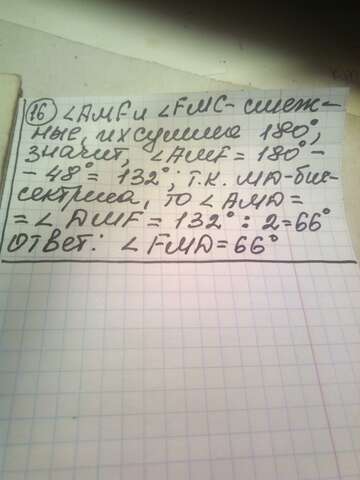 16 ∠AMF и ∠FMC - смеж-
ные, их сумма 180°,
значит, ∠AMF = 180° -
- 48° = 132°; т.к. MD - бис-
сектриса, то ∠AMD =
= ∠DMF = 132° : 2 = 66°
Ответ: ∠FMD = 66°